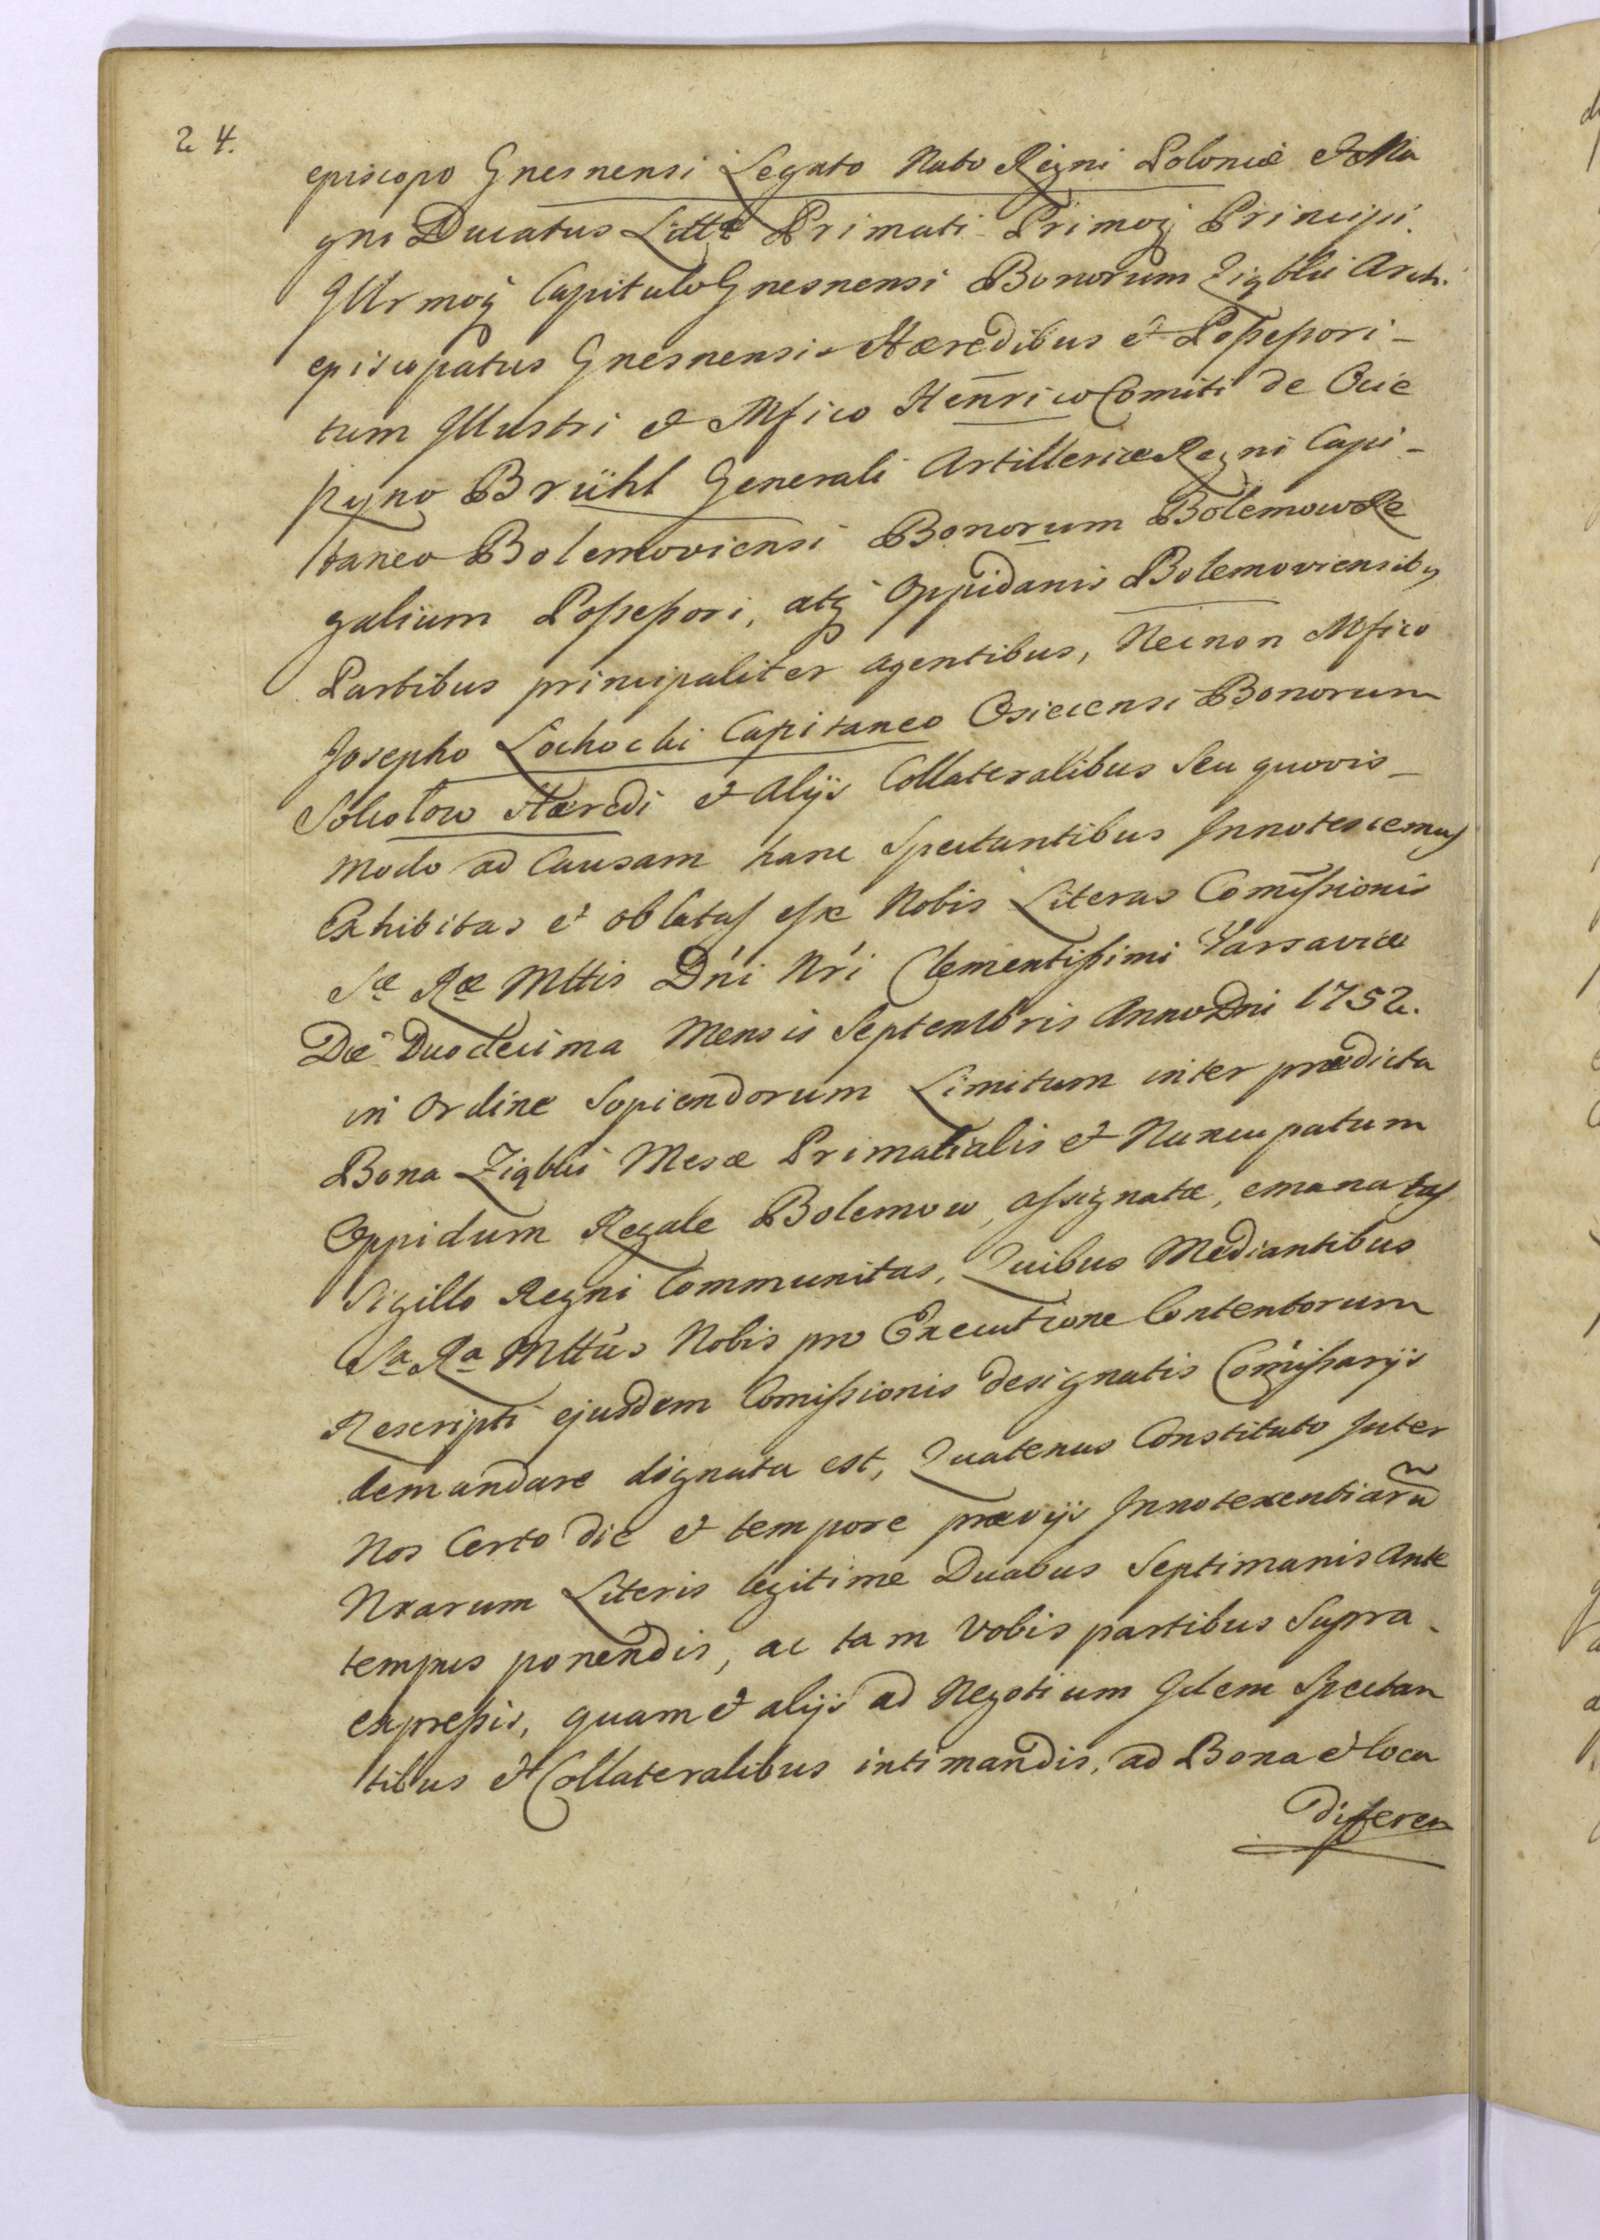 24.
episcopo Gnesnensi Legato Nato Regni Poloniæ et Ma
gni Ducatus Littæ Primati Primoq Principi.
Illrmoq Capitulo Gnesnensi Bonorum Ziąbki Archi
episcopatus Gnesnensis Hæredibus et Possessori-
tum Illustri et Mfico Henrico Comiti de Ocie
szyno Brühl Generali Artilleriæ Regni Capi-
taneo Bolemoviensi Bonorum Bolemow Re
galium Possessori, atq Oppidanis Bolemoviensibg
Partibus principaliter agentibus, Necnon Mfico
Josepho Łochocki Capitaneo Osiecensi Bonorum
Sokołow Hæredi et Alijs Collateralibus Seu quovis-
modo ad Causam hanc Spectantibus Innotescemus
Exhibitas et oblatas esse Nobis Literas Comissionis
Sæ Ræ Mttis Dni Nri Clementissimi Varsaviæ
Die Duodecima Mensis Septembris Anno Dni 1752.
in Ordine Sopiendorum Limitum inter prædicta
Bona Ziąbki Mesæ Primatialis et Nuncupatum
Oppidum Regale Bolemow, assignatæ, emanatas
Sigillo Regni Communitas, Quibus Mediantibus
Sa Ra Mttus Nobis pro Executione Contentorum
Rescripti ejusdem Comissionis designatis Comissarijs
demandare dignata est, Quatenus Constituto Inter
Nos Certo die et tempore prævijs Innotexentiarũ
Nrarum Literis legitime Duabus Septimanis Ante
tempus ponendis, ac tam Vobis partibus Supra-
expressis, quam et alijs ad Negotium Idem Spectan
tibus et Collateralibus intimandis, ad Bona et loca
differen